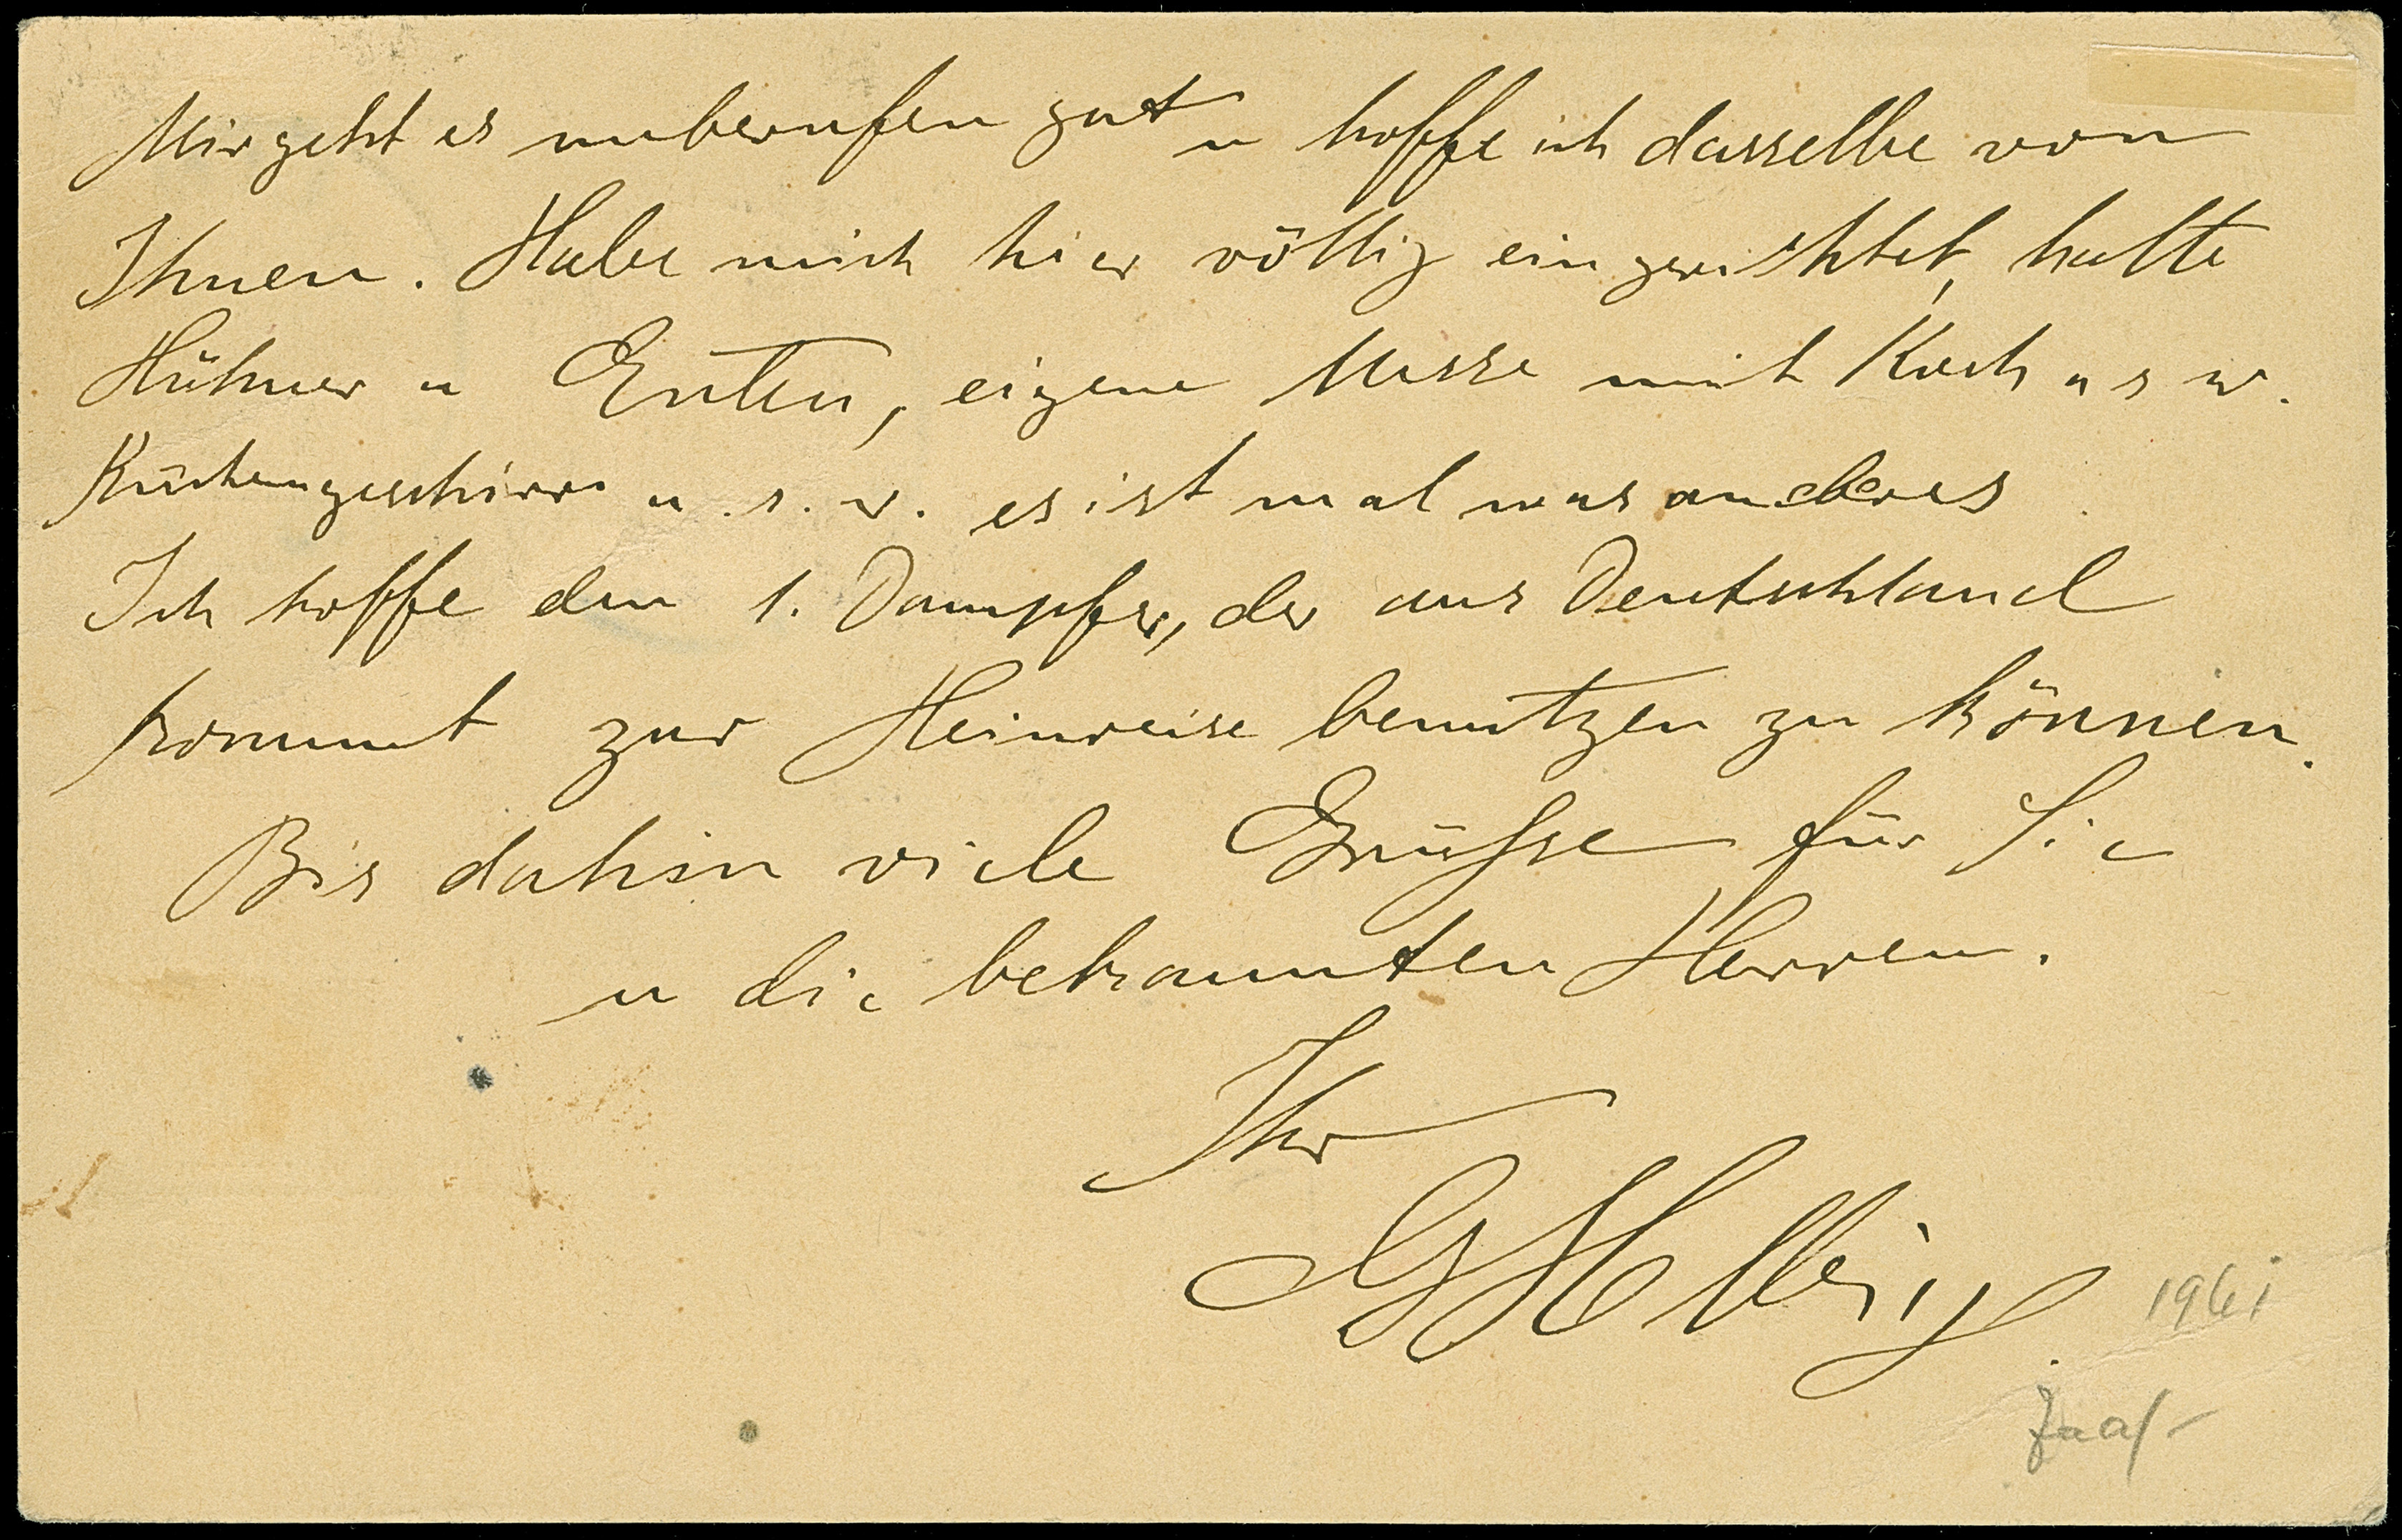 Mir geht es unberufen gut u hoffe ich dasselbe von
Ihnen. Habe mich hier völlig eingerichtet, halte
Hühner u Enten, eigene Messe mit Koch u s w.
Küchengeschirr u. s. w. es ist mal was anderes
Ich hoffe den 1. Dampfer, der aus Deutschland
kommt zur Heimreise benutzen zu können.
Bis dahin viele Grüsse für Sie
u die bekannten Herren.
Ihr
G Helbig